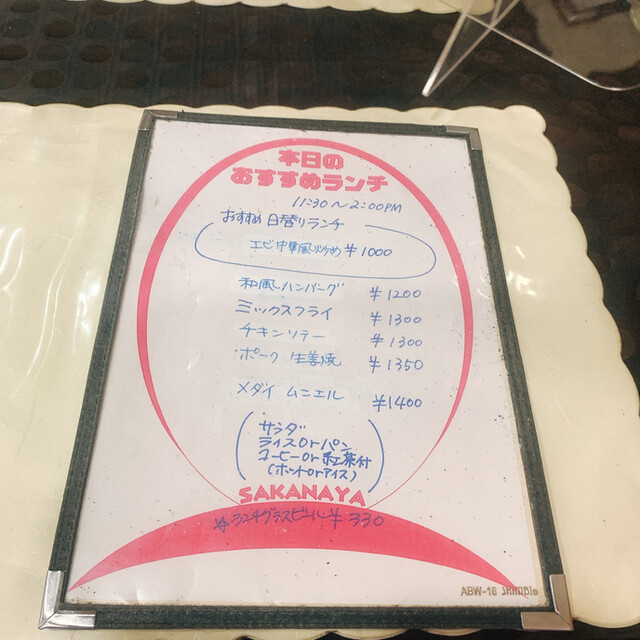 本日の
おすすめランチ
11:30〜2:00PM
おすすめ 日替りランチ
エビ中華風炒め ¥1000
和風ハンバーグ ¥1200
ミックスフライ ¥1300
チキンソテー ¥1300
ポーク 生姜焼 ¥1350
メダイ ムニエル ¥1400
サラダ
ライスorパン
コーヒーor紅茶付
(ホットorアイス)
SAKANAYA
グラスビール ¥330
ABW-16